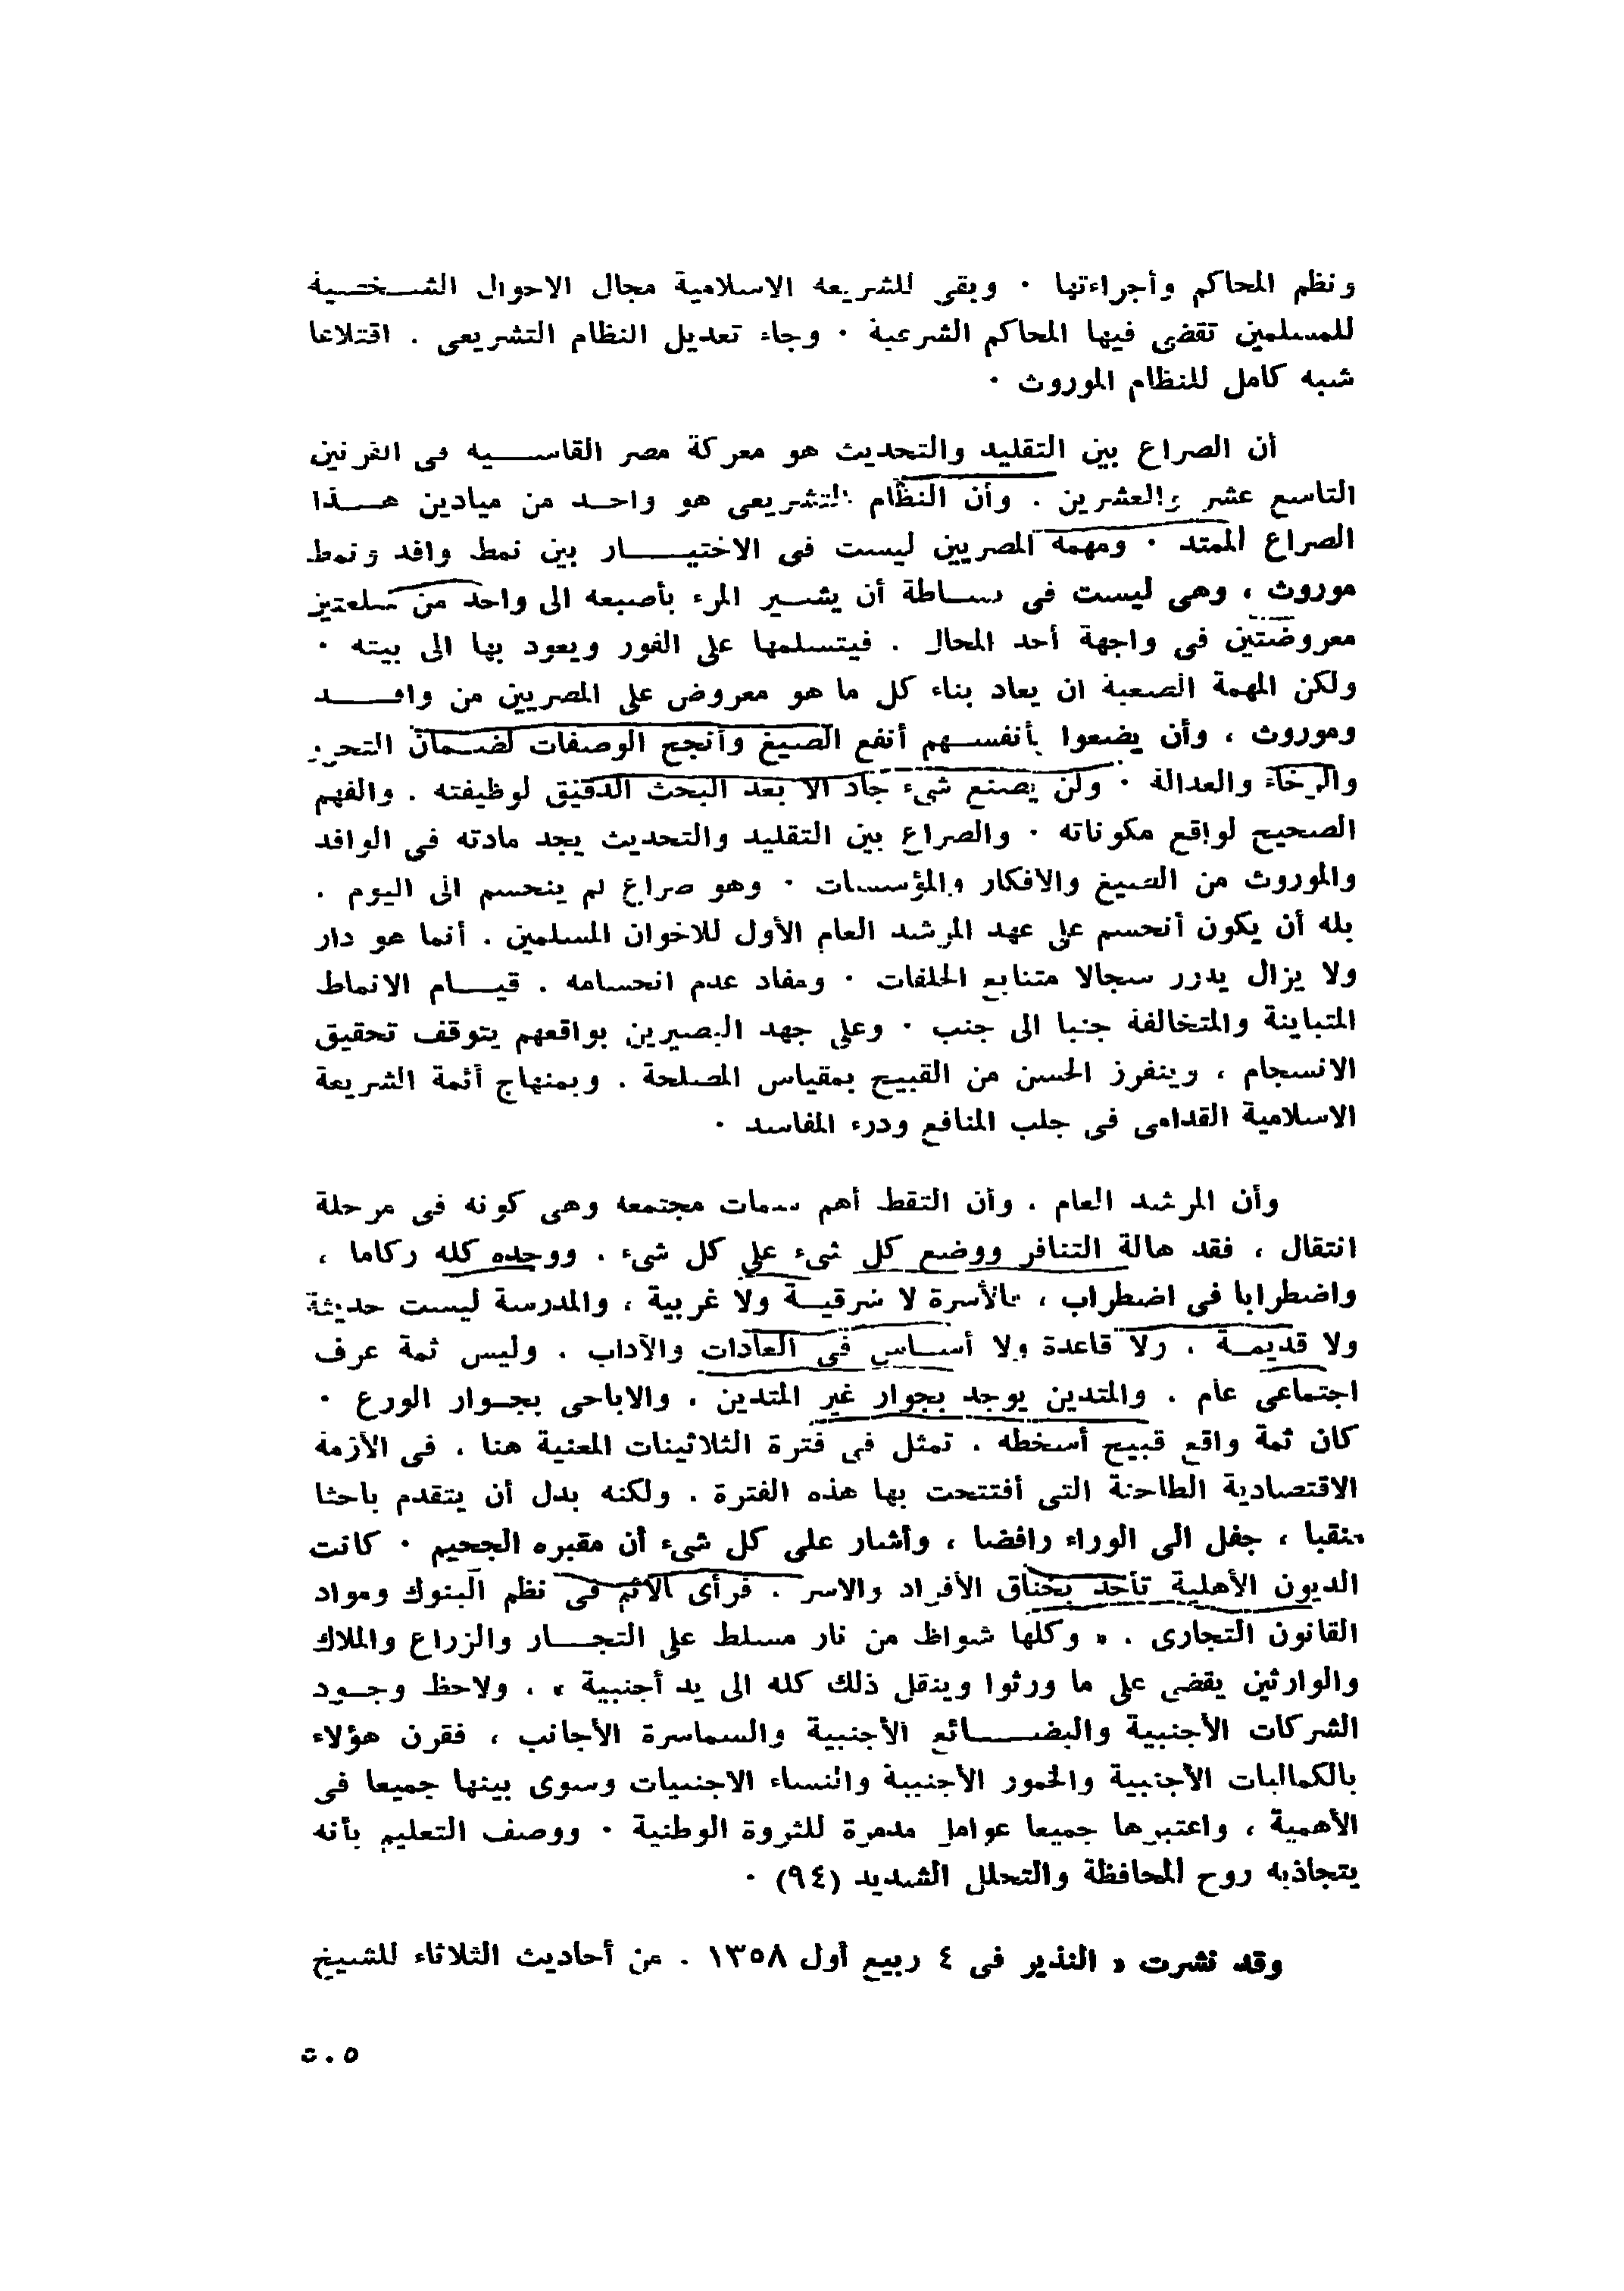 ونظم المحاكم وأجراءتها ٠ وبقى للشريعه الاسلامية مجال الاحوال الشخصية
للمسلمين تقضى فيها المحاكم الشرعية ٠ وجاء تعديل النظام التشريعى . اقتلاعا
شبه كامل للنظام الموروث ٠
أن الصراع بين التقليد والتحديث هو معركة مصر القاسيه فى القرنين
التاسع عشر والعشرين . وأن النظام التشريعى هو واحد من ميادين هذا
الصراع الممتد ٠ ومهمة المصريين ليست فى الاختيار بين نمط وافد ونمط
موروث ، وهى ليست فى بساطة أن يشير المرء بأصبعه الى واحد من سلعتين
معروضتين فى واجهة أحد المحال . فيتسلمها على الفور ويعود بها الى بيته ٠
ولكن المهمة الصعبة ان يعاد بناء كل ما هو معروض على المصريين من وافد
وموروث ، وأن يضعوا بأنفسهم أنفع الصيغ وأنجح الوصفات لضمان التحرر
والرخاء والعدالة ٠ ولن يصنع شىء جاد الا بعد البحث الدقيق لوظيفته . والفهم
الصحيح لواقع مكوناته ٠ والصراع بين التقليد والتحديث يجد مادته فى الوافد
والموروث من الصيغ والافكار والمؤسسات ٠ وهو صراع لم ينحسم الى اليوم .
بله أن يكون أنحسم على عهد المرشد العام الأول للاخوان المسلمين . أنما هو دار
ولا يزال يدور سجالا متتابع الحلقات ٠ ومفاد عدم انحسامه . قيام الانماط
المتباينة والمتخالفة جنبا الى جنب ٠ وعلى جهد البصيرين بواقعهم يتوقف تحقيق
الانسجام ، وينفرز الحسن من القبيح بمقياس المصلحة . وبمنهاج أئمة الشريعة
الاسلامية القدامى فى جلب المنافع ودرء المفاسد ٠
وأن المرشد العام . وأن التقط أهم سمات مجتمعه وهى كونه فى مرحلة
انتقال ، فقد هالة التنافر ووضع كل شىء على كل شىء . ووجده كله ركاما ،
واضطرابا فى اضطراب ، فالأسرة لا شرقية ولا غربية ، والمدرسة ليست حديثة
ولا قديمة . ولا قاعدة ولا أساس فى العادات والآداب . وليس ثمة عرف
اجتماعى عام . والمتدين يوجد بجوار غير المتدين . والاباحى بجوار الورع ٠
كان ثمة واقع قبيح أسخطه . تمثل فى فترة الثلاثينات المعنية هنا . فى الأزمة
الاقتصادية الطاحنة التى أفتتحت بها هذه الفترة . ولكنه بدل أن يتقدم باحثا
منقبا ، جفل الى الوراء رافضا ، وأشار على كل شىء أن مقبره الجحيم ٠ كانت
الديون الأهلية تأخذ بخناق الأفراد والاسر . فرأى الاثم فى نظم البنوك ومواد
القانون التجارى . « وكلها شواظ من نار مسلط على التجار والزراع والملاك
والوارثين يقضى على ما ورثوا وينقل ذلك كله الى يد أجنبية » . ولاحظ وجود
الشركات الأجنبية والبضائع الأجنبية والسماسرة الأجانب ، فقرن هؤلاء
بالكماليات الأجنبية والخمور الأجنبية والنساء الاجنبيات وسوى بينها جميعا فى
الأهمية ، واعتبرها جميعا عوامل مدمرة للثروة الوطنية ٠ ووصف التعليم بأنه
يتجاذبه روح المحافظة والتحلل الشديد (٩٤) ٠
وقد نشرت « النذير فى ٤ ربيع أول ١٣٥٨ . عن أحاديث الثلاثاء للشيخ
٥٠٥